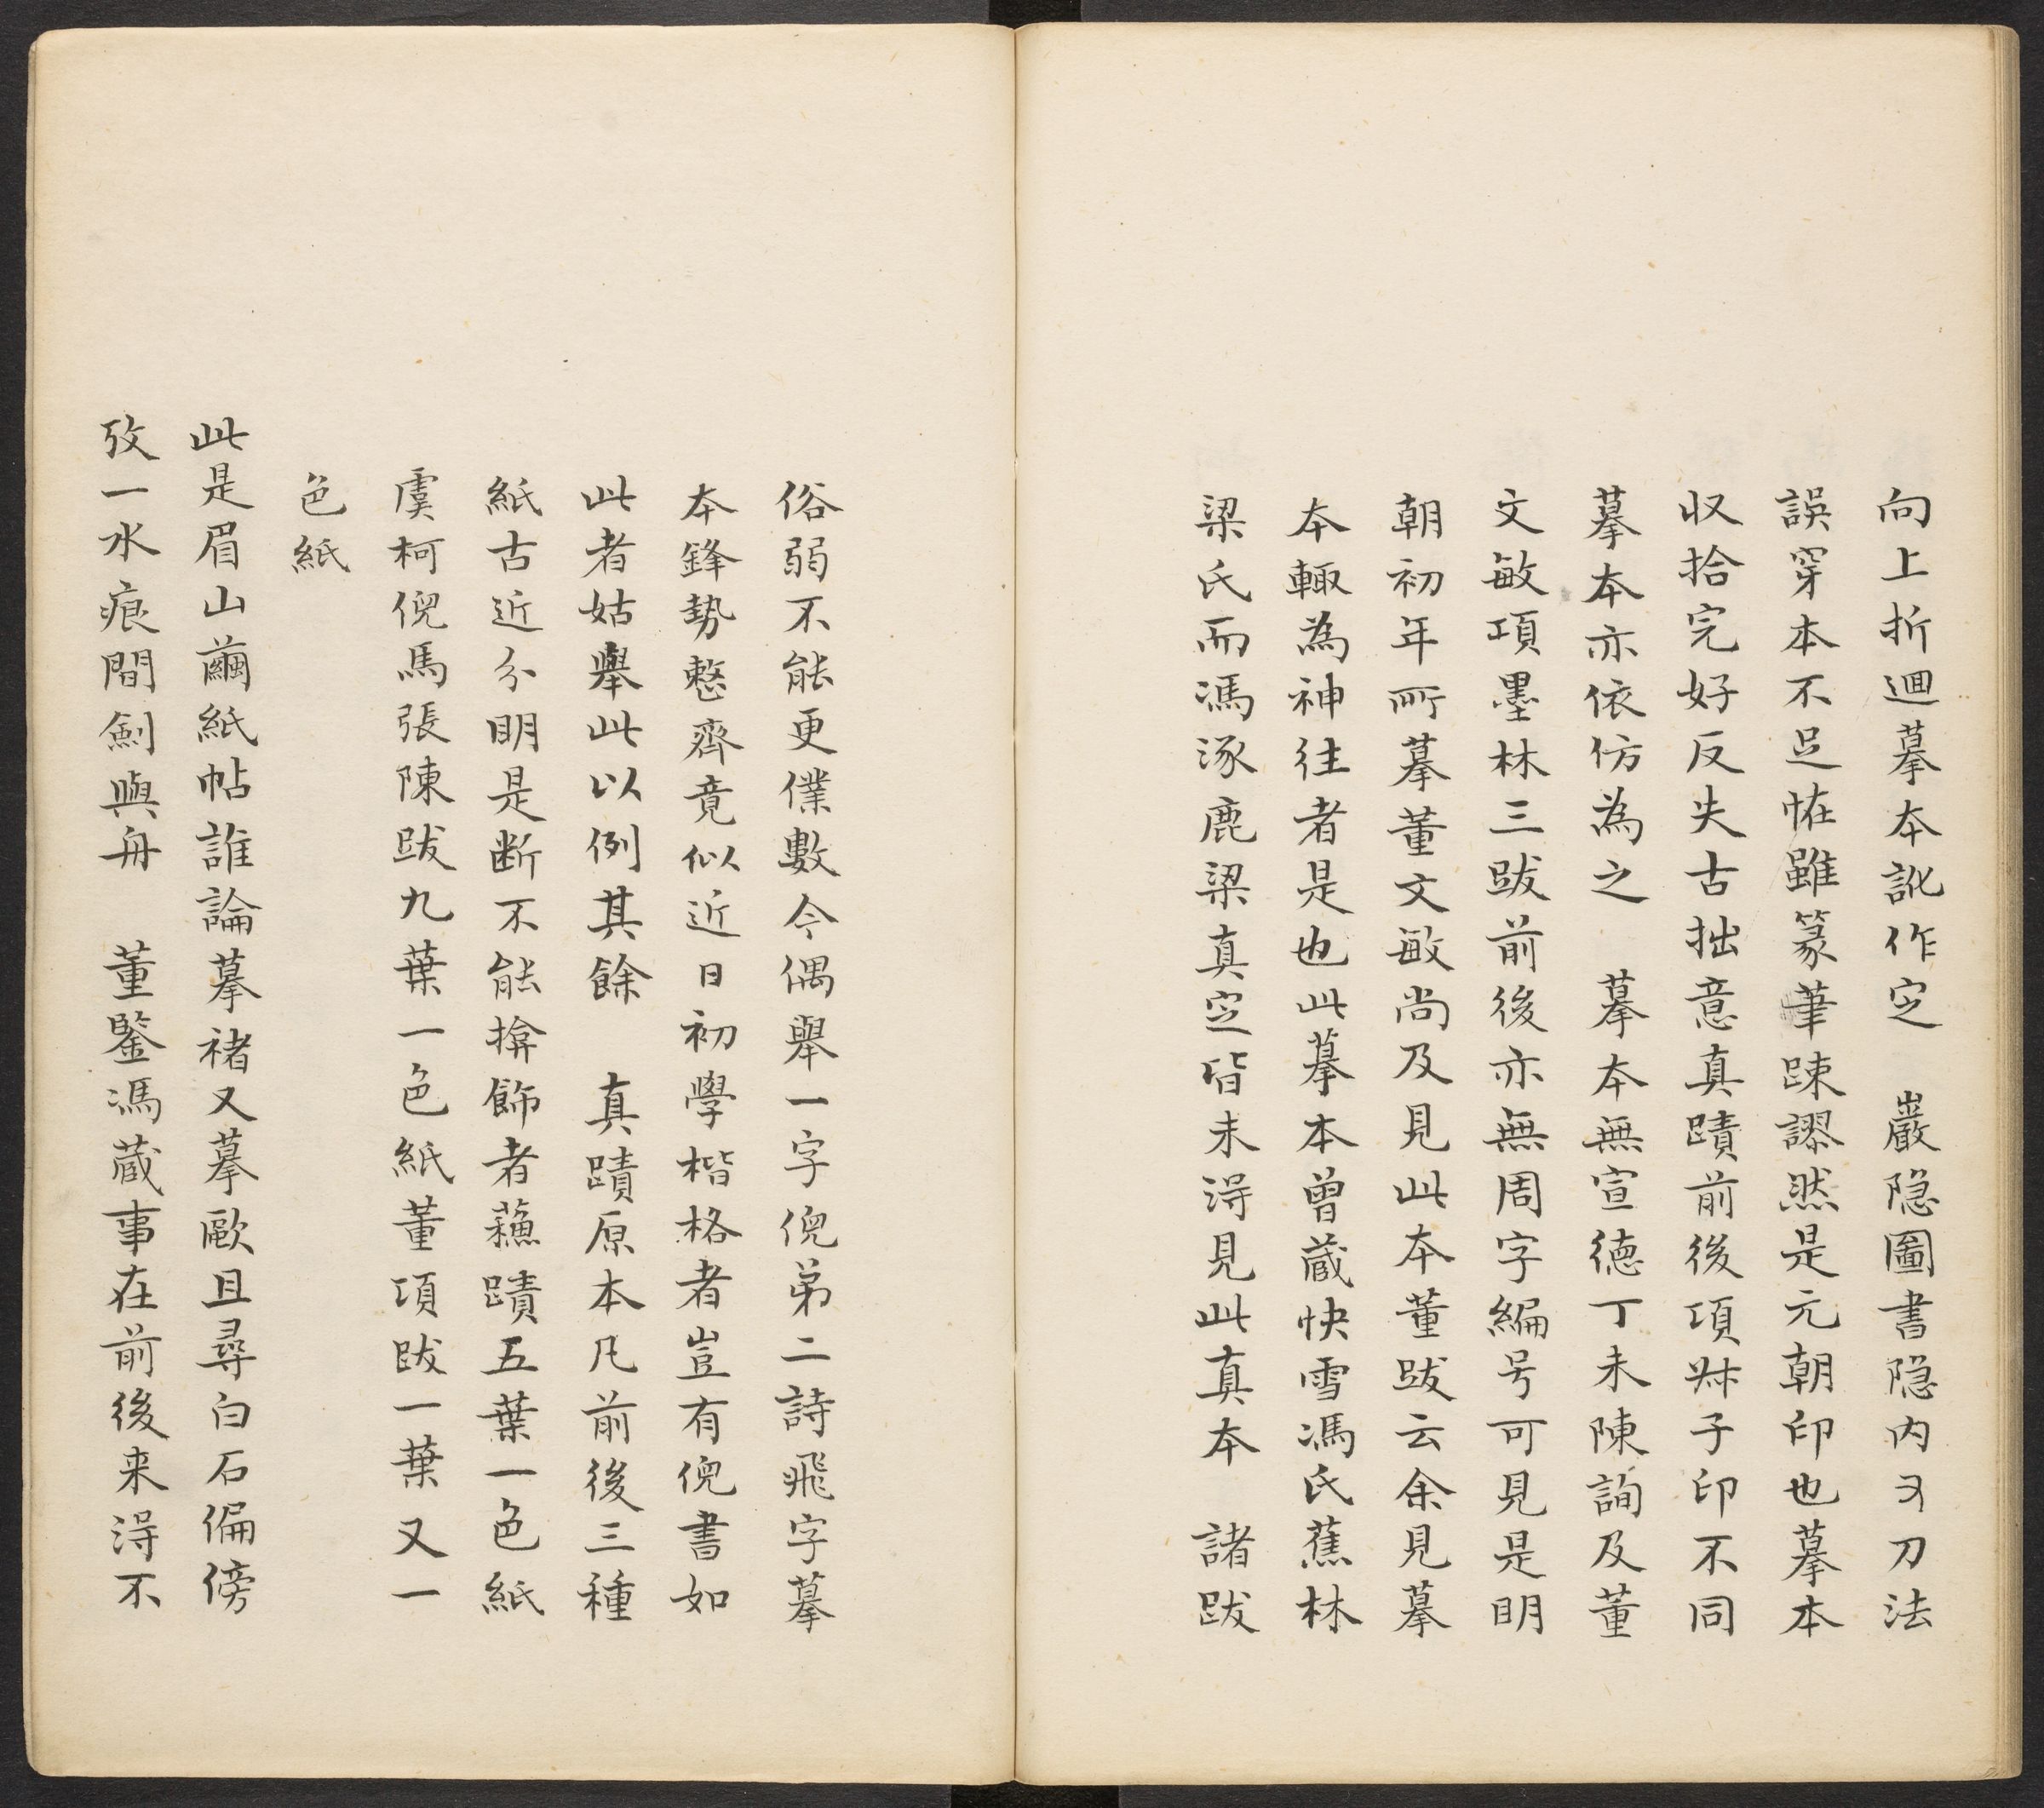 向上折迴摹本訛作㝎　巖隐圖書隐内刀法
誤穿本不足恠雖篆筆踈謬然是元朝印也摹本
収拾完好反失古拙意真蹟前後項𠦑子印不同
摹本亦依仿為之　摹本無宣德丁未陳詢及董
文敏項墨林三跋前後亦無周字編号可見是明
朝初年所摹董文敏尚及見此本董跋云余見摹
本輙為神往者是也此摹本曾蔵快雪馮氏蕉林
梁氏而馮涿鹿梁真㝎皆未淂見此真本　諸跋
俗弱不能更僕數今偶舉一字倪第二詩飛字摹
本鋒勢整齊竟似近日初學楷格者豈有倪書如
此者姑舉此以例其餘　真蹟原本凡前後三種
紙古近分明是断不能揜飾者蘓蹟五葉一色紙
虞柯倪馬張陳跋九葉一色紙董項跋一葉又一
色紙
此是眉山繭紙帖誰論摹褚又摹歐且尋白石偏傍
攷一水痕間劍與舟　董鍳馮蔵事在前後来淂不